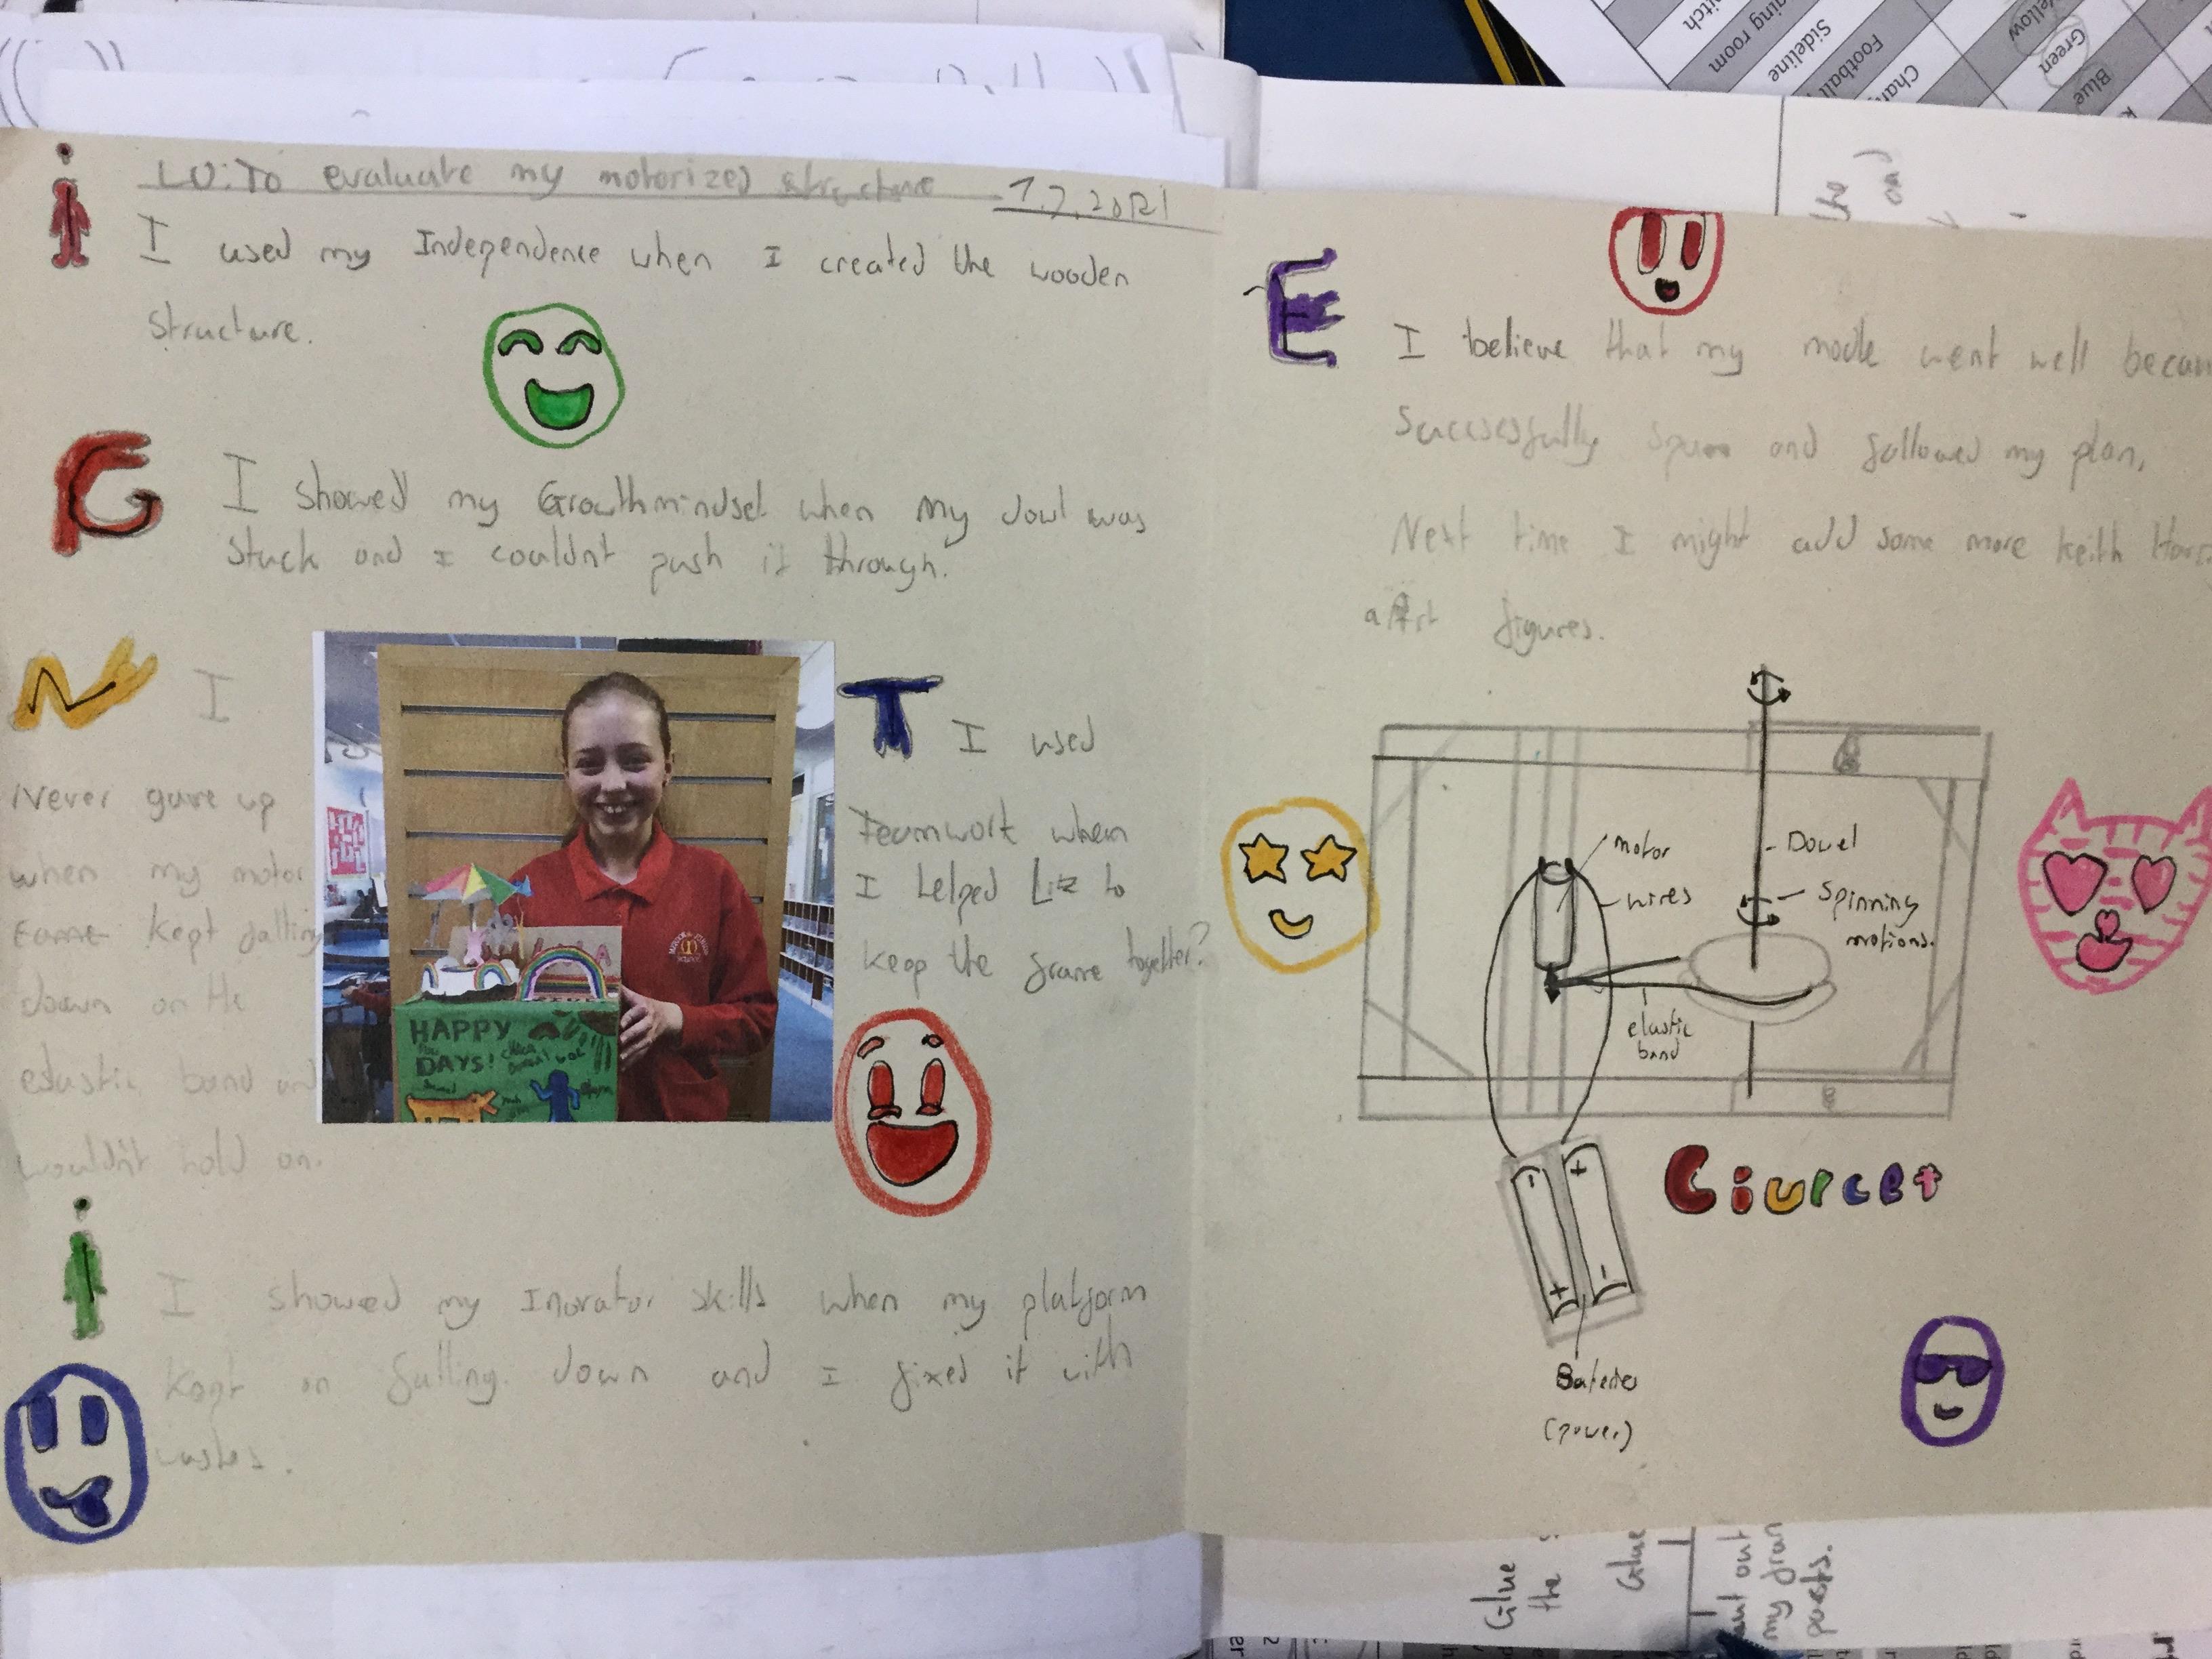 LO: To evaluate my motorized structure
1.7.2021
i
I used my Independence when I created the wooden
structure.
G
I showed my Growthmindset when my dowl was
stuck and I couldnt push it through.
N I
Never gave up
when my motor
kept falling
down on the
elastic band and
wouldn't hold on.
HAPPY
DAYS!
T I used
Teamwork when
I helped to
keep the frame together?
i
I showed my Inovator skills when my platform
kept on falling. down and I fixed it with
E
I believe that my mode went well
Successfully and followed my plan.
Next time I might add some more Keith
figures.
motor
wires
Dowel
Spinning
motions.
elastic
band
- +
+ -
Ciurcet
(power)
Sideline
Football
Yellow
Green
Blue
Glue
the
Glue
out
my
posts.